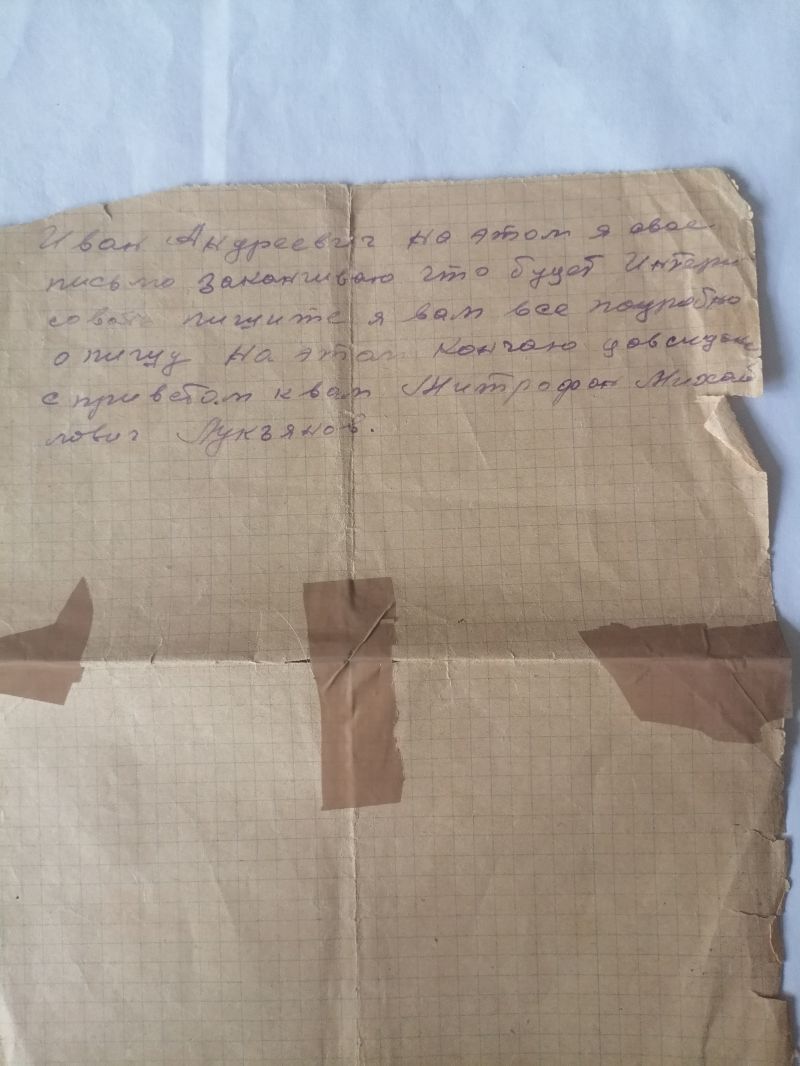 Иван Андреевич на этом я свое
письмо заканчиваю что будет Интери
совать пишите я вам все подробно
опишу на этом кончаю довсидан
с приветом к вам Митрофан Михай
лович Лукъянов.